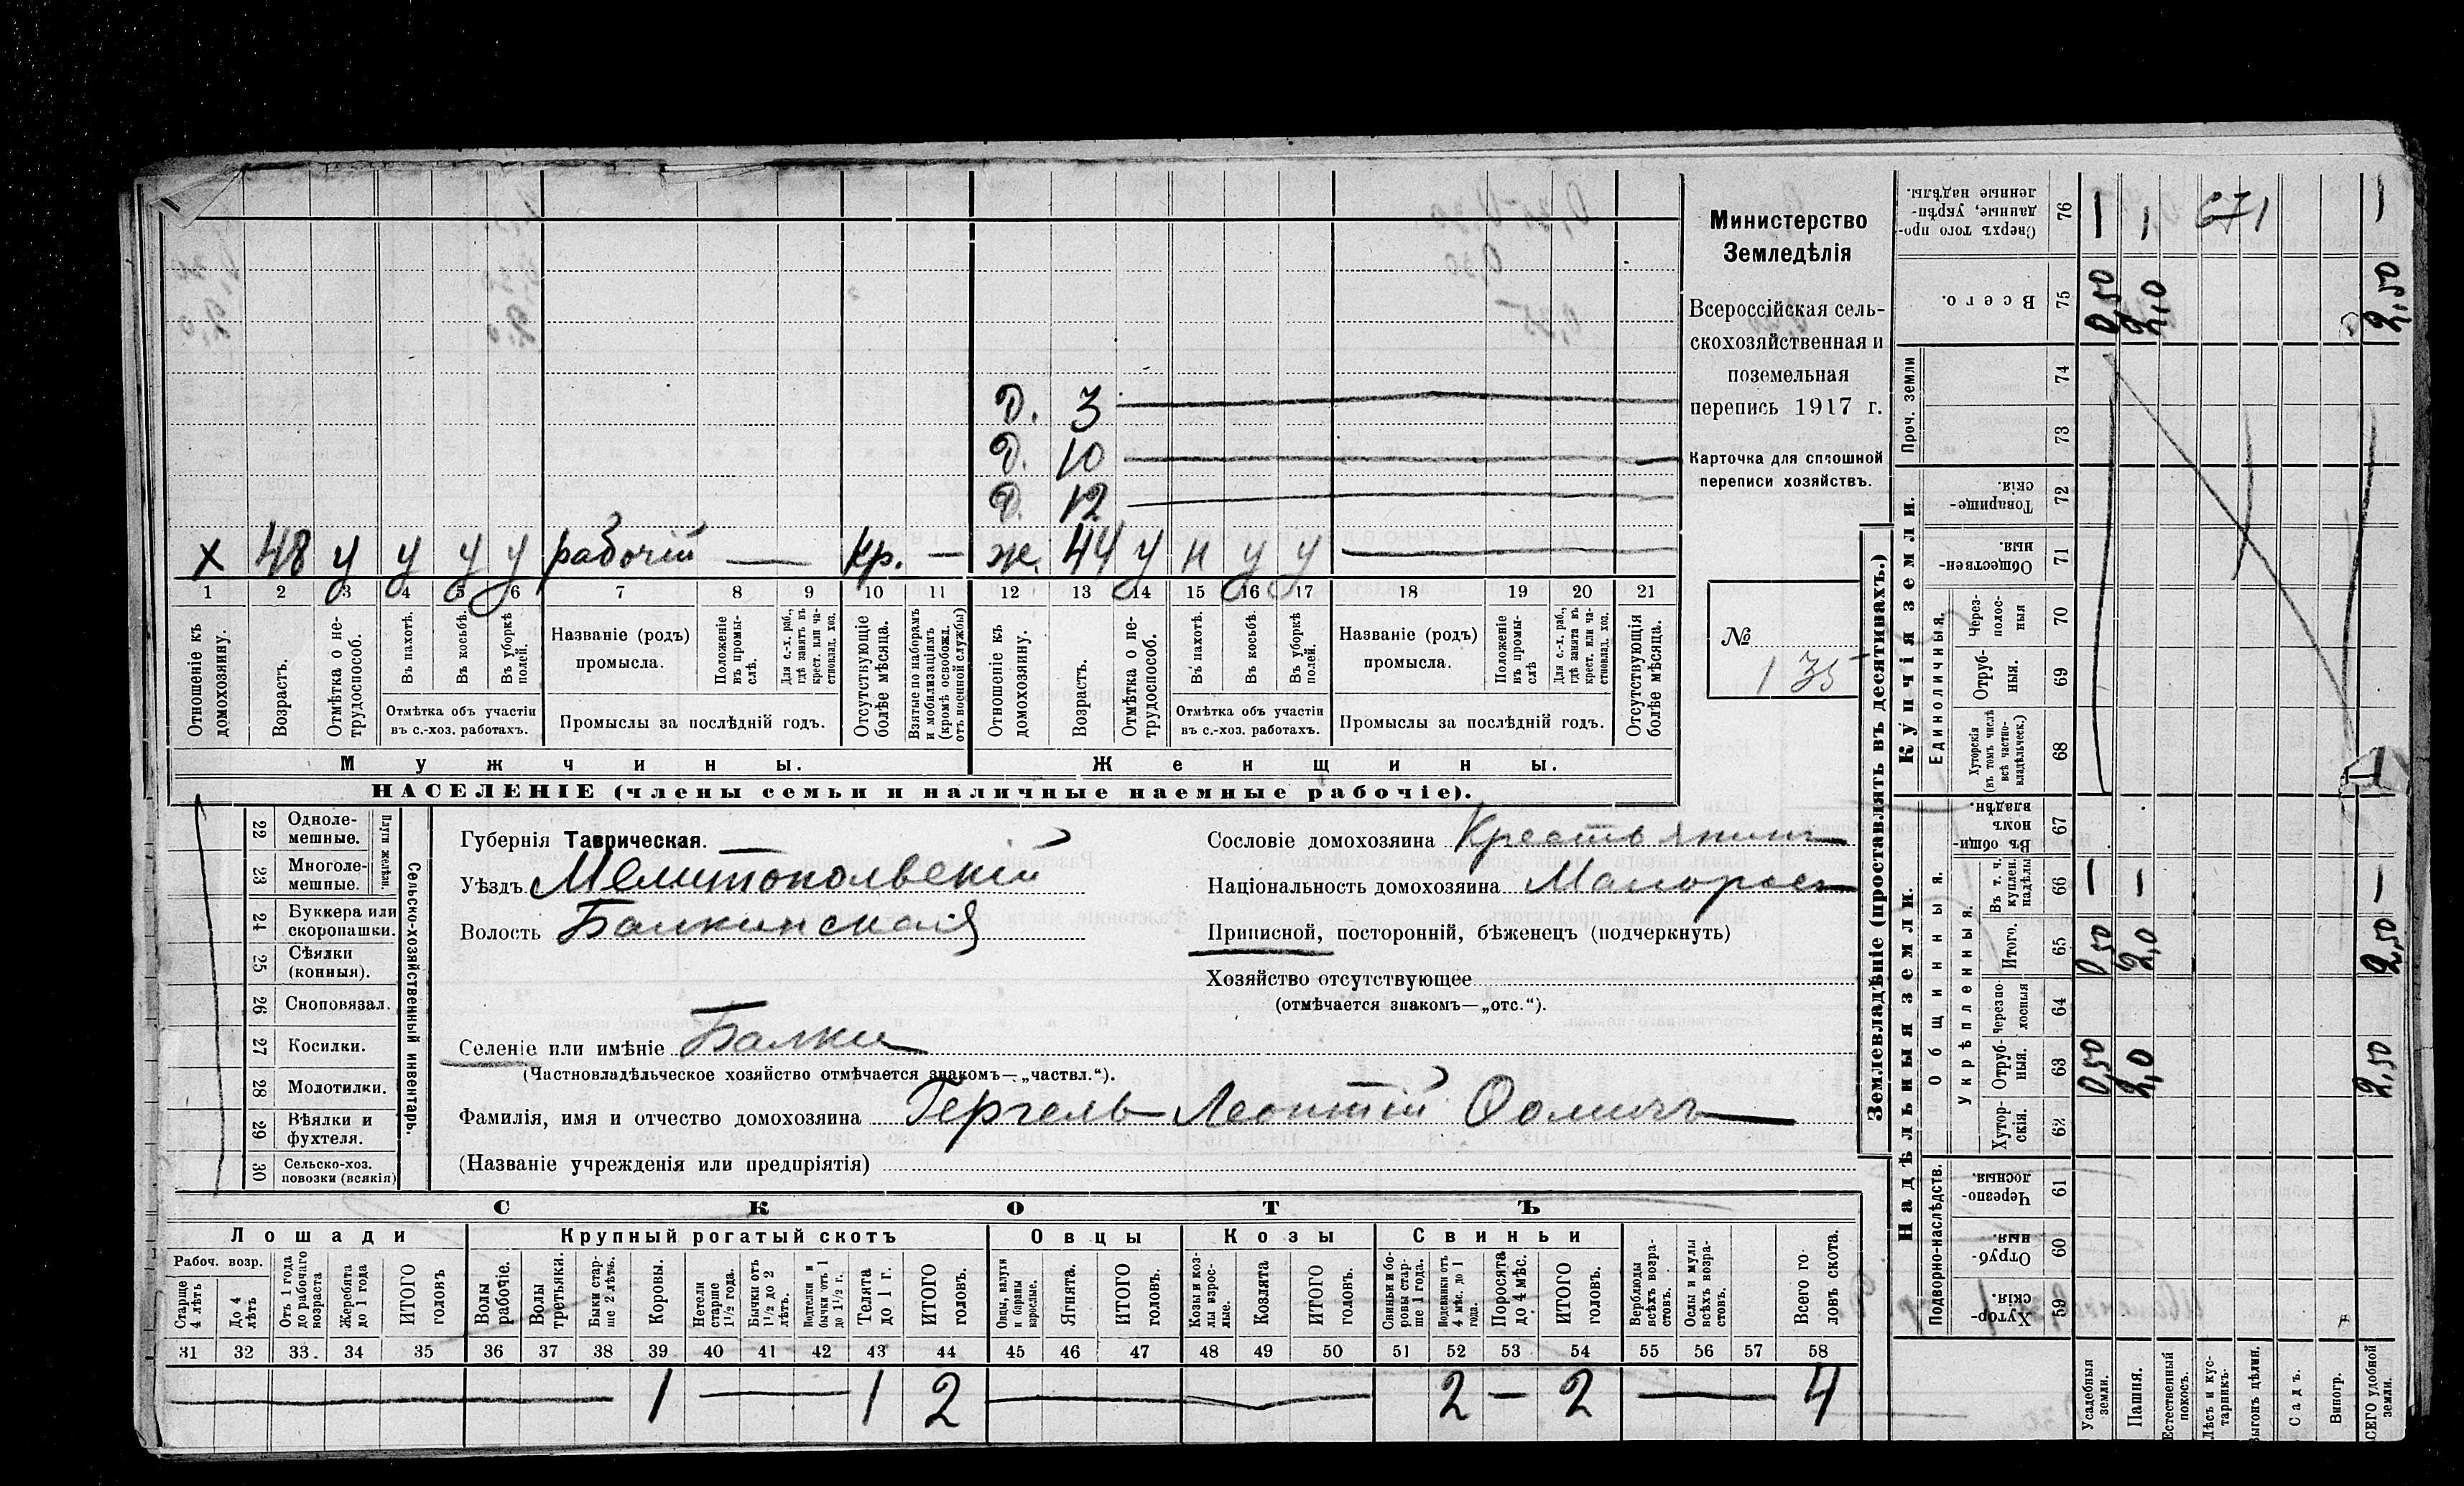 Министерство
Земледѣлія
Всероссійская сель-
скохозяйственная и
поземельная
перепись 1917 г.
Карточка для сплошной
переписи хозяйствъ.
№
135
Д. 3
Д. 10
Д. 12
х 48 у у у у рабочій — кр. — ж. 44 у н у у
1 2 3 4 5 6 7 8 9 10 11 12 13 14 15 16 17 18 19 20 21
Отношеніе къ домохозяину.
Возрастъ.
Отмѣтка о не-трудоспособ.
Въ пахотѣ.
Въ косьбѣ.
Въ уборкѣ полей.
Отмѣтка объ участіи
въ с.-хоз. работахъ.
Названіе (родъ)
промысла.
Положеніе въ промы-слѣ.
Для с.-х. раб., гдѣ занятъ въ крест. или ча-стновлад. хоз.
Промыслы за послѣдній годъ.
Отсутствующіе болѣе мѣсяца.
Взятые по наборамъ и мобилизаціямъ (кромѣ освобожд. отъ военной службы)
Отношеніе къ домохозяину.
Возрастъ.
Отмѣтка о не-трудоспособ.
Въ пахотѣ.
Въ косьбѣ.
Въ уборкѣ полей.
Отмѣтка объ участіи
въ с.-хоз. работахъ.
Названіе (родъ)
промысла.
Положеніе въ промы-слѣ
Для с.-х. раб., гдѣ занята въ крест. или ча-стновлад. хоз.
Промыслы за послѣдній годъ.
Отсутствующія болѣе мѣсяца.
Мужчины.
Женщины.
НАСЕЛЕНІЕ (члены семьи и наличные наемные рабочіе).
22 Одноле-мешные.
23 Многоле-мешные.
Плуги желѣзн.
24 Буккера или скоропашки.
25 Сѣялки (конныя).
26 Сноповязал.
27 Косилки.
28 Молотилки.
29 Вѣялки и фухтеля.
30 Сельско-хоз. повозки (всякія)
Сельско-хозяйственный инвентарь.
Губернія Таврическая.
Уѣздъ Мелитопольскій
Волость Балкинская
Селеніе или имѣніе Балки
(Частновладѣльческое хозяйство отмѣчается знакомъ—„частвл.“).
Фамилія, имя и отчество домохозяина Гергель Леонтій Фомичъ
(Названіе учрежденія или предпріятія)
Сословіе домохозяина Крестьянинъ
Національность домохозяина Малоросъ
Приписной, посторонній, бѣженецъ (подчеркнуть)
Хозяйство отсутствующее
(отмѣчается знакомъ—„отс.“).
СКОТЪ
Лошади
Крупный рогатый скотъ
Овцы
Козы
Свиньи
Рабоч. возр.
Старше 4 лѣтъ
До 4 лѣтъ
Отъ 1 года до рабочаго возраста
Жеребята до 1 года
ИТОГО головъ
Волы рабочіе.
Волы третьяки.
Быки стар-ше 2 лѣтъ.
Коровы.
Нетели старше 1½ года.
Бычки отъ 1½ до 2 лѣтъ.
Подтелки и бычки отъ 1 до 1½ г.
Телята до 1 г.
ИТОГО головъ.
Овцы, валухи и бараны взрослые.
Ягнята.
ИТОГО головъ.
Козы и коз-лы взрос-лые.
Козлята
ИТОГО головъ.
Свиньи и бо-ровы стар-ше 1 года.
Подсвинки отъ 4 мѣс. до 1 года.
Поросята до 4 мѣс.
ИТОГО головъ.
Верблюды всѣхъ возра-стовъ.
Ослы и мулы всѣхъ возра-стовъ.
Всего го-ловъ скота.
31 32 33 34 35 36 37 38 39 40 41 42 43 44 45 46 47 48 49 50 51 52 53 54 55 56 57 58
1 — 1 2 — 2 — 2 — 4
Землевладѣніе (проставлять въ десятинахъ.)
Купчія земли.
Надѣльныя земли.
Сверхъ того про-данные, укрѣп-ленные надѣлы. 76
Всего. 75
Проч. земли 74 73
Товарище-скія. 72
Обществен-ныя. 71
Единоличныя.
Через-полос-ныя 70
Отруб-ныя. 69
Хуторскія (въ томъ числѣ всѣ частно-владѣльческ.) 68
Въ общи-номъ владѣн. 67
Общинныя.
Укрѣпленныя.
Въ т. ч. куплен. надѣлы 66
Итого. 65
Черезпо-лосныя 64
Отруб-ныя. 63
Хутор-скія. 62
Подворно-наслѣдств.
Черезпо-лосныя. 61
Отруб-ныя. 60
Хутор-скія. 59
Усадебныя земли. 0,50 0,50 — 0,50 —
Пашня. 2,0 2,0 — 2,0 —
Естественный покосъ.
Лѣсъ и кус-тарникъ.
Выгонъ цѣлин.
Садъ.
Виногр.
ВСЕГО удобной земли. 2,50 2,50 — 2,50 —